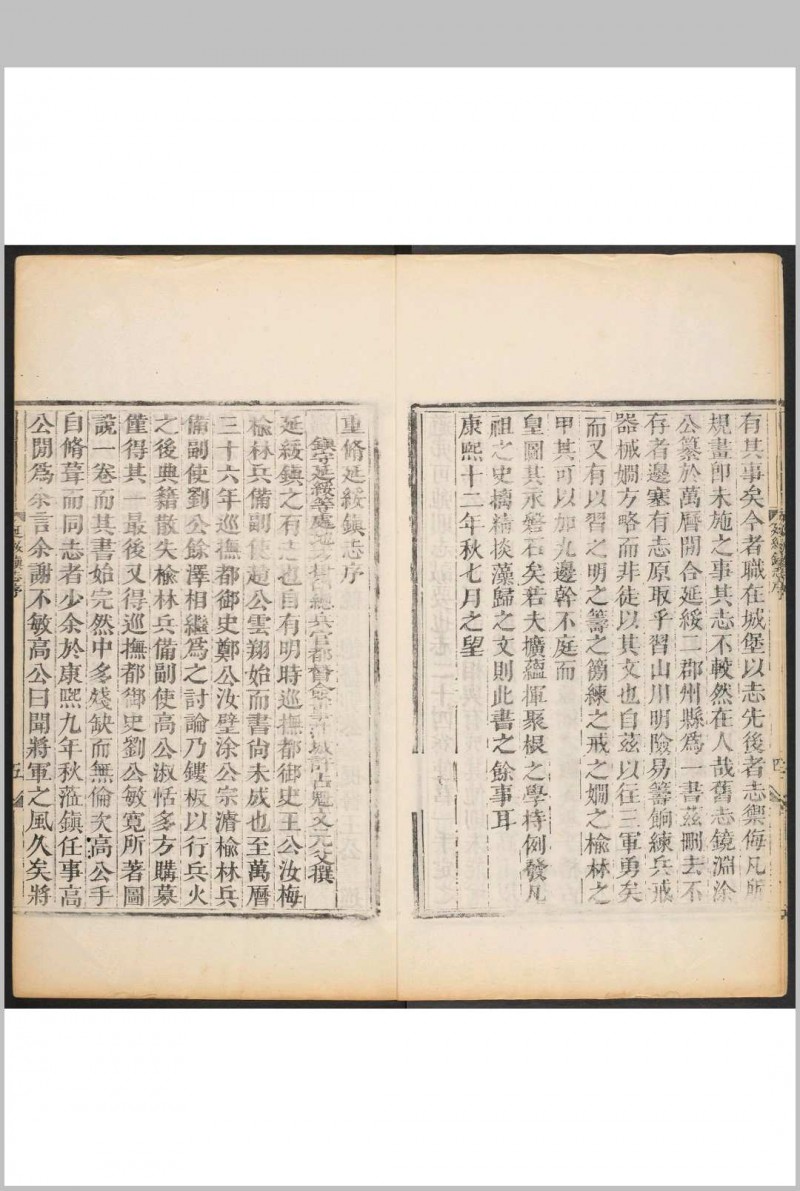 有其事矣今者職在城堡以志先後者志禦侮凡所
規畫卽未施之事其志不較然在人哉舊志鏡淵涂
公纂於萬曆間合延綏二郡州縣爲一書茲刪去不
存者邊塞有志原取乎習山川明險易籌餉練兵戒
器械嫺方略而非徒以其文也自茲以往三軍勇矣
而又有以習之明之籌之餉練之戒之嫺之榆林之
甲其可以加九邊幹不庭而
皇圖其永磐石矣若夫擴蘊揮聚根之學特例發凡
祖之史擣精掞藻歸之文則此書之餘事耳
康熙十二年秋七月之望
延綏鎭志序
四
重脩延綏鎭志序
鎭守延綏等處地方總兵官都督僉事許占魁文元父撰
延綏鎭之有志也自有明時巡撫都御史王公汝梅
榆林兵備副使趙公雲翔始而書尚未成也至萬曆
三十六年巡撫都御史鄭公汝璧涂公宗濬榆林兵
備副使劉公餘澤相繼爲之討論乃鏤板以行兵火
之後典籍散失榆林兵備副使高公淑恬多方購募
僅得其一最後又得巡撫都御史劉公敏寬所著圖
說一卷而其書始完然中多殘缺而無倫次高公手
自脩葺而同志者少余於康熙九年秋蒞鎭任事高
公閒爲余言余謝不敏高公曰聞將軍之風久矣將
延綏鎭志序
五